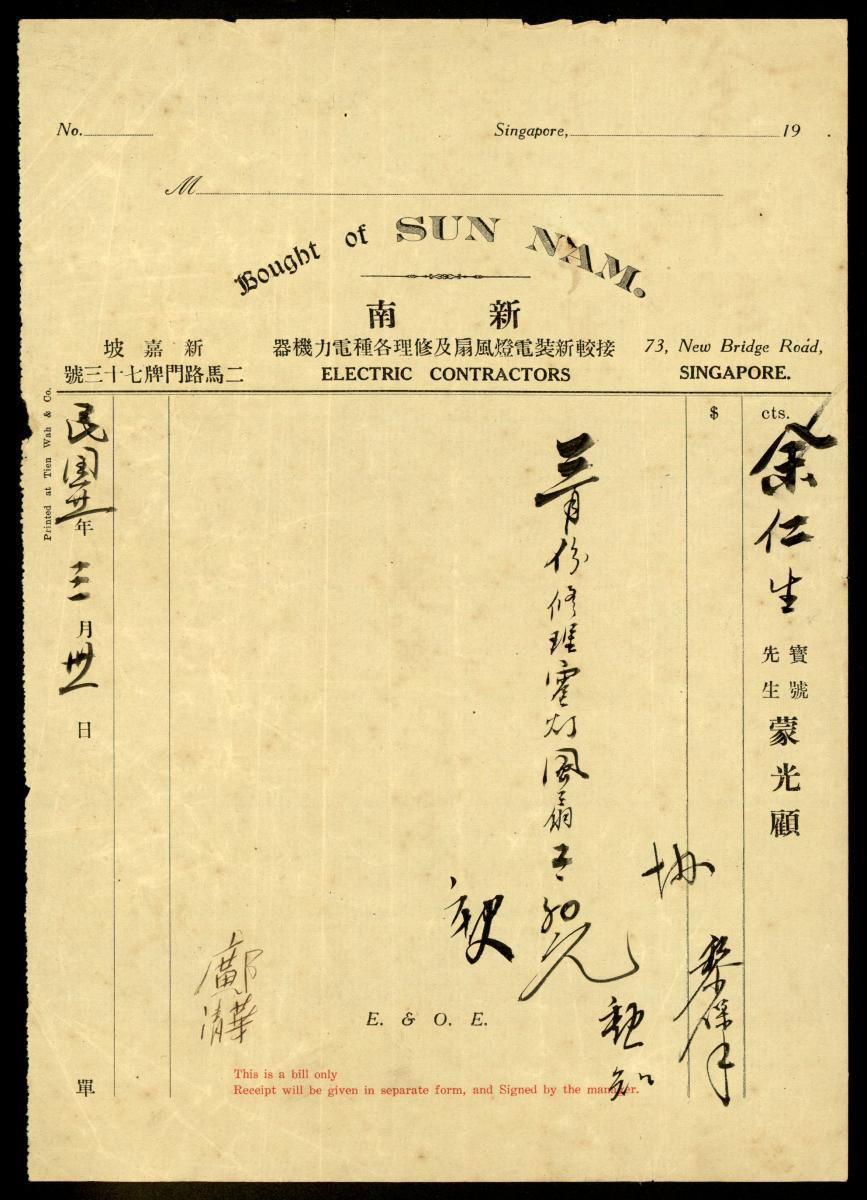 No.
Singapore, 19
M
Bought of SUN NAM.
新南
接較新裝電燈風扇及修理各種電力機器
ELECTRIC CONTRACTORS
73, New Bridge Road,
SINGAPORE.
新嘉坡
二馬路門牌七十三號
$ cts.
余仁生
寶號
先生
蒙光顧
三月份修理電灯風扇工艮元
黎保
鄺清華
民国廿年三月卅一日
單
E. & O. E.
This is a bill only
Receipt will be given in separate form, and Signed by the manager.
Printed at Tien Wah & Co.